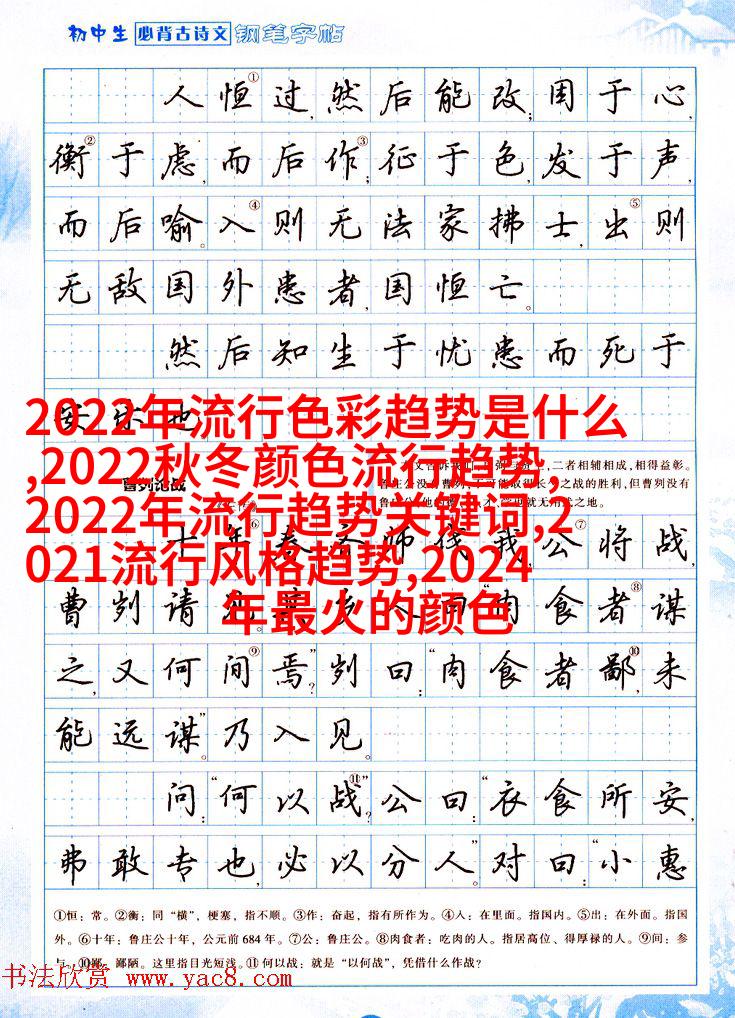 初中生 必背古诗文 钢笔字帖
人恒①过,然后能改;困于心,
衡②于虑,而后作③;征于色,发于声,
而后喻。入④则无法家拂士,出⑤则
无敌国外患者,国恒亡。
然后知生于忧患而死于
安乐也
2022年流行色彩趋势是什么
,2022秋冬颜色流行趋势,
2022年流行趋势关键词,2
021流行风格趋势,2024
年最火的颜色
二者相辅相成,相得益彰。
的胜利,但曹刿没有
就无用武之地。
曹刿论战
十年⑥春,齐师伐我,公⑦将战,
曹刿请见。其乡人曰:“肉食者⑧谋
之,又何间⑨焉?”刿曰:“肉食者鄙⑩,未
能远谋。”乃入见。
问:“何以战⑪?”公曰:“衣食所安,
弗敢专也,必以分人。”对曰:“小惠
①恒:常。②衡:同“横”,梗塞,指不顺。③作:奋起,指有所作为。④入:在里面。指国内。⑤出:在外面。指国
外。⑥十年:鲁庄公十年,公元前684年。⑦公:鲁庄公。⑧肉食者:吃肉的人。指居高位、得厚禄的人。⑨间:参
与。⑩鄙:鄙陋。这里指目光短浅。⑪何以战:就是“以何战”,凭借什么作战?
书法欣赏 www.yac8.com